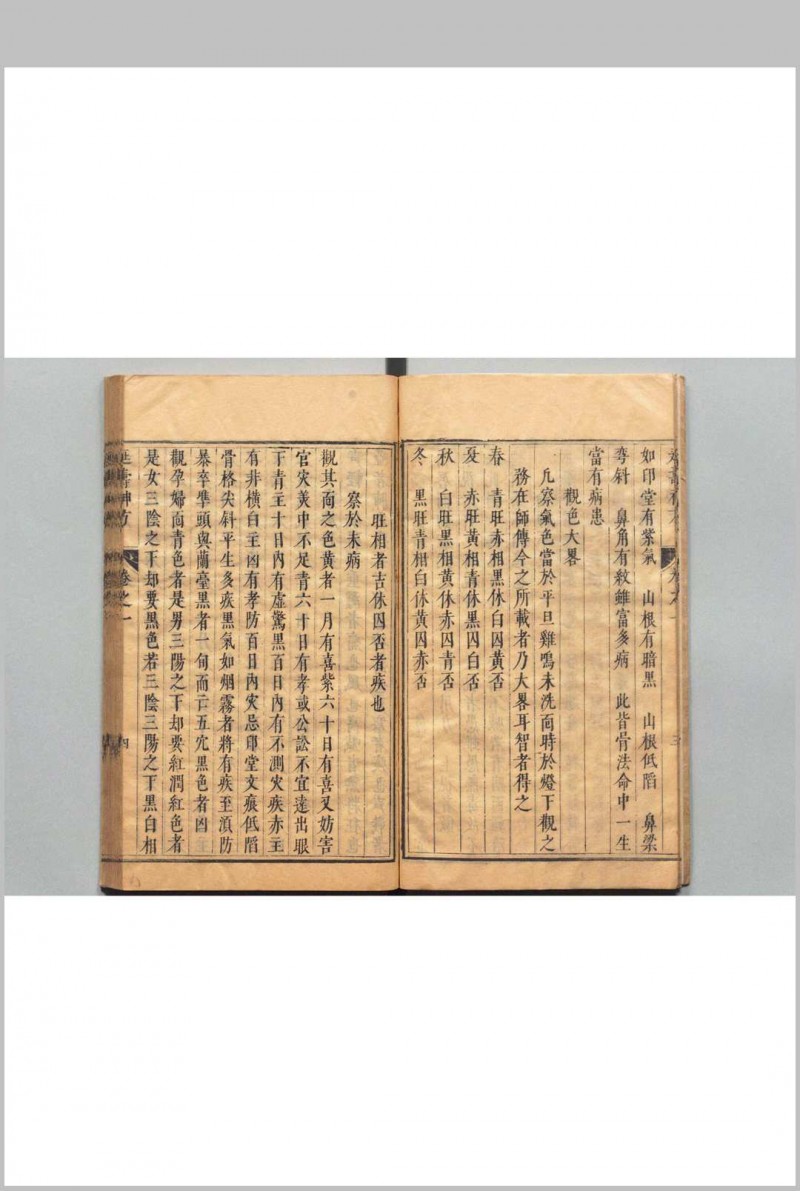 如印堂有紫氣 山根有暗黑 山根低陷 鼻梁
弯斜 鼻角有紋雖富多病 此皆骨法命中一生
當有病患
觀色大畧
凡察氣色當於平旦雞鳴未洗面時於燈下觀之
務在師傳今之所載者乃大畧耳智者得之
春 青旺赤相黑休白囚黃否
夏 赤旺黃相青休黑囚白否
秋 白旺黑相黃休赤囚青否
冬 黑旺青相白休黃囚赤否
旺相者吉休囚否者疾也
察於未病
觀其面之色黃者一月有喜紫六十日有喜又妨害
官災黃中不足青六十日有孝或公訟不宜遠出眼
下青主十日內有虛驚黑百日內有不測災疾赤主
有非橫白主凶有孝防百日內災忌印堂文痕低陷
骨格尖斜平生多疾黑氣如烟霧者將有疾至須防
暴卒準頭與蘭臺黑者一旬而亡五穴黑色者凶
觀孕婦面青色者是男三陽之下却要紅潤紅色者
是女三陰之下却要黑色若三陰三陽之下黑白相
卷之一
四